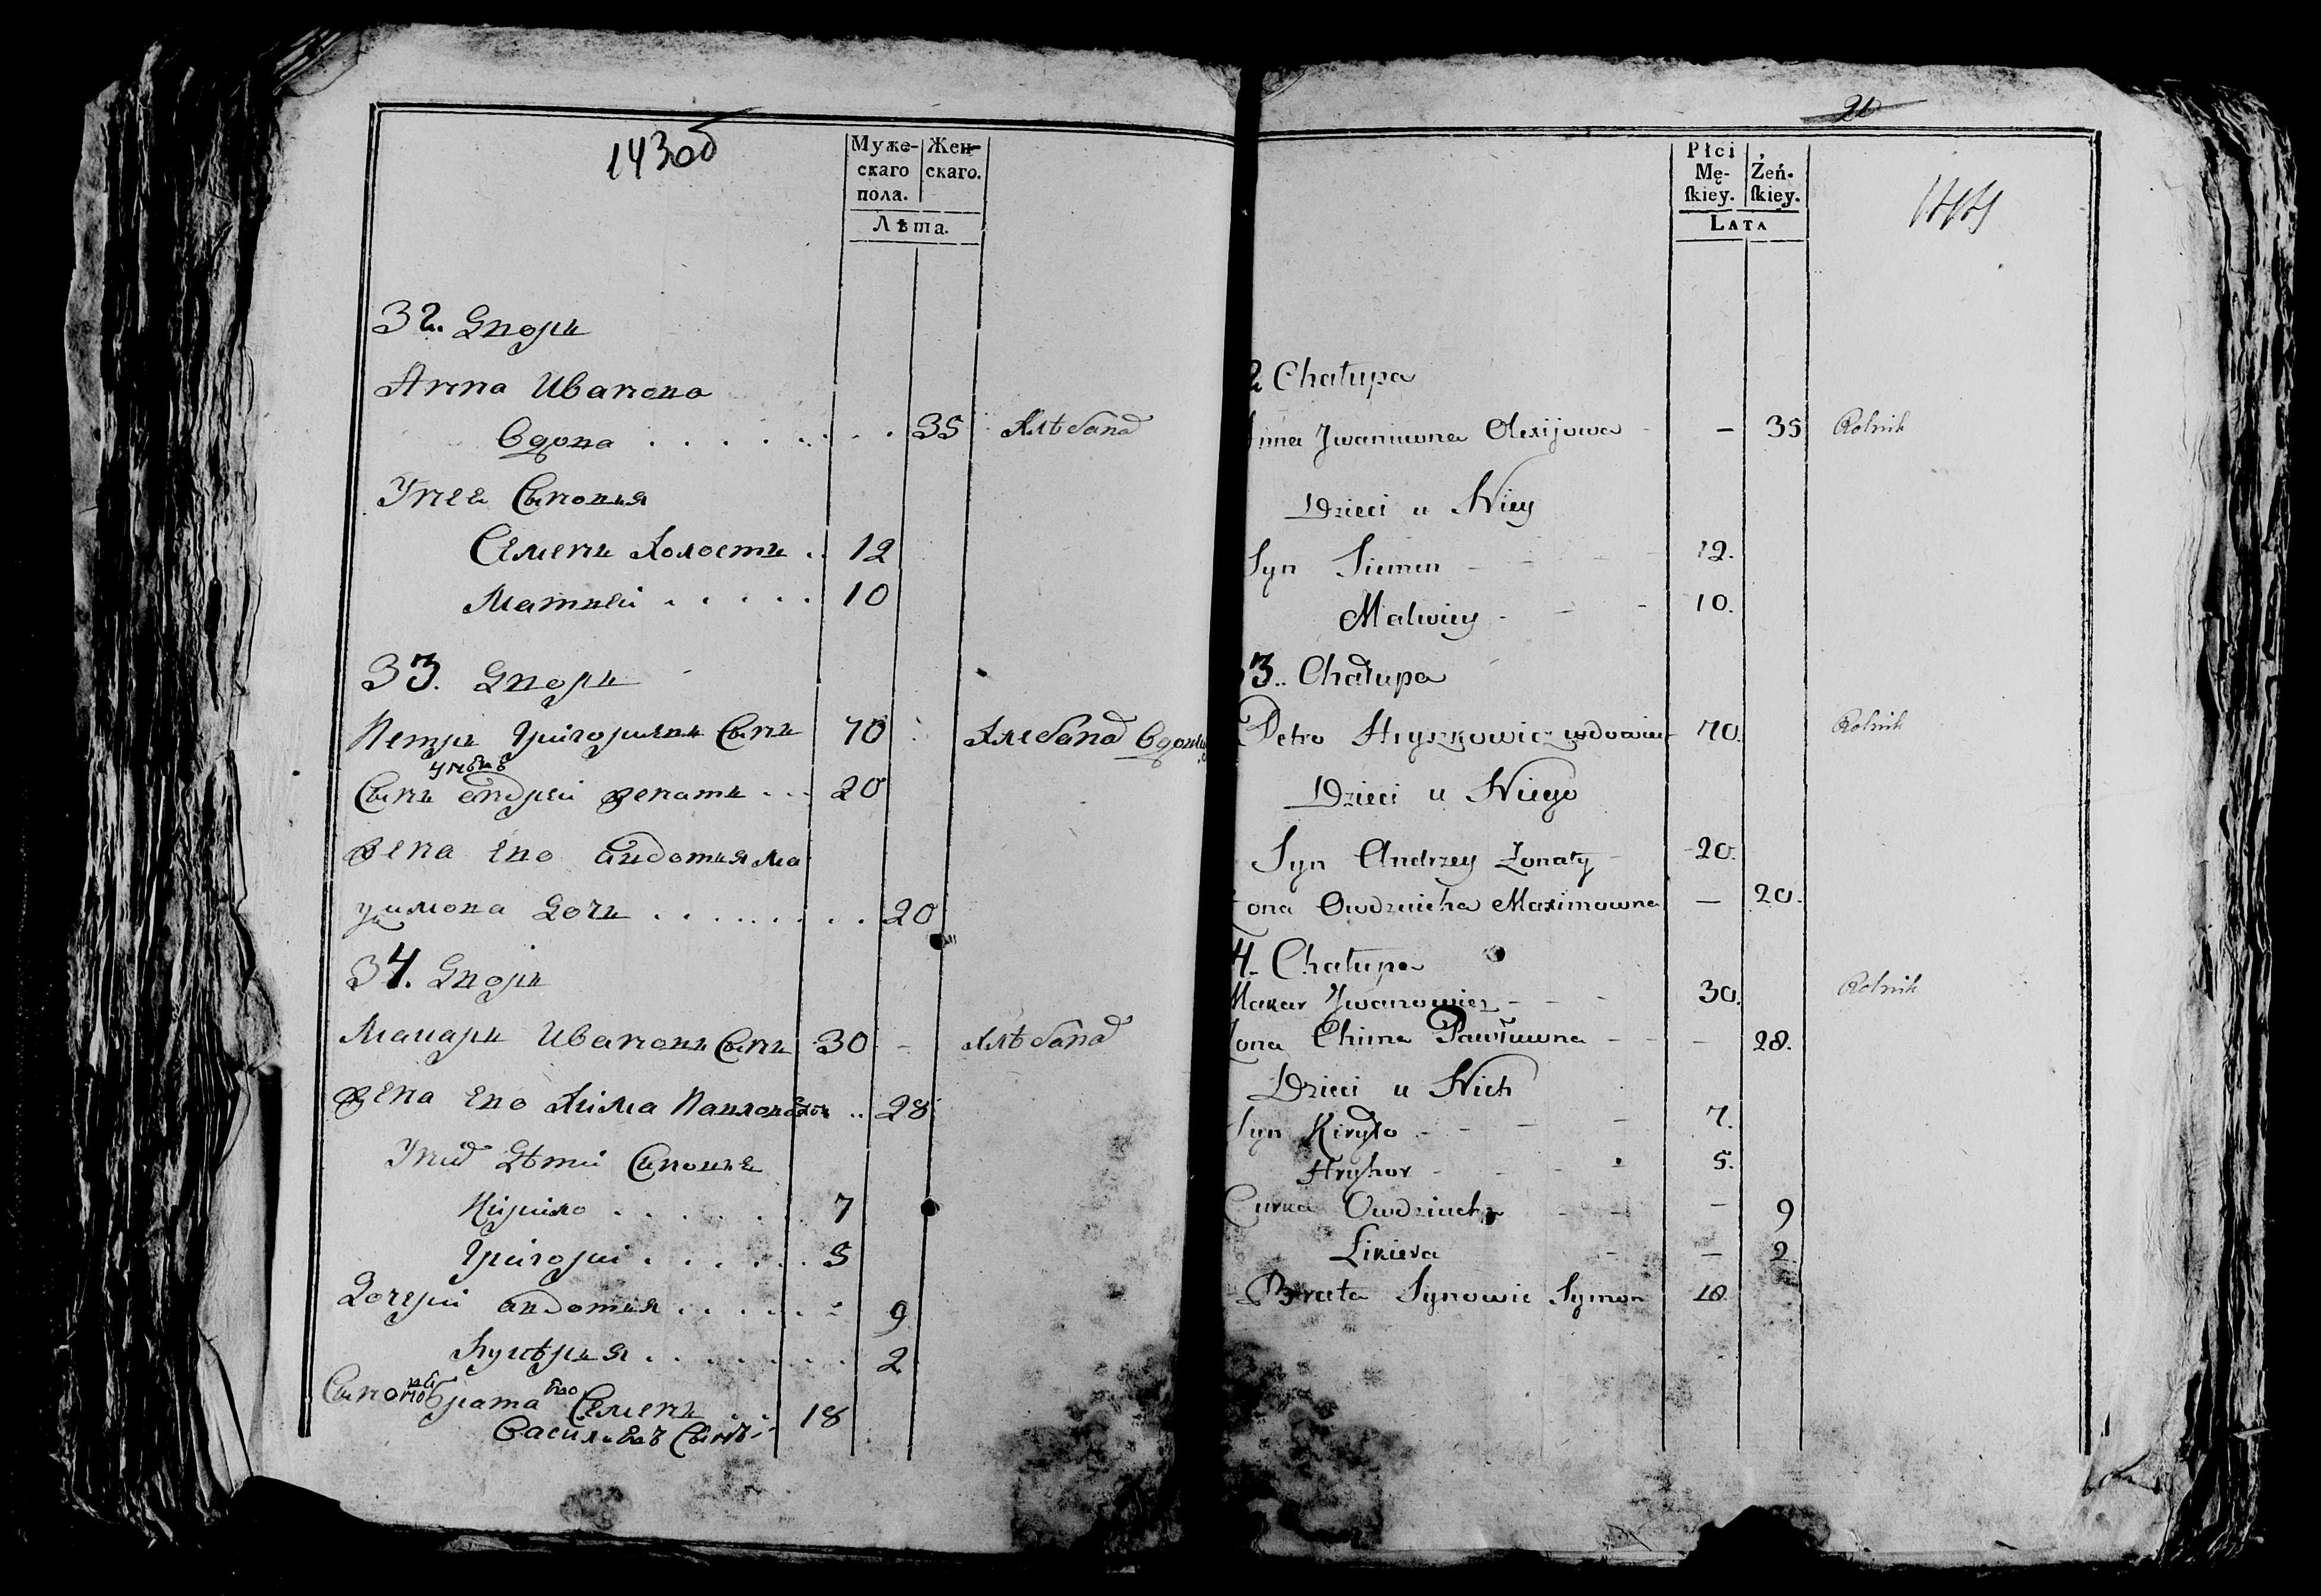 143об
Муже-
скаго
пола.
Жен-
скаго.
Лѣта.
32. Дворъ
Анна Иванова
Вдова . . . . . . . . 35 Хлѣбопа
У нее Сыновья
Семенъ Холостъ . . 12
Матвей . . . . . 10
33. Дворъ
Петръ Григорьевъ Сынъ 70 Хлебопа Вдовецъ
у него
Сынъ андрей женатъ . . . 20
жена ево авдотья Ма
ѯимова Дочь . . . . . . . . 20
34. Дворъ
Макаръ Ивановъ Сынъ 30 - Хлѣбопа
жена ево Хима Павловадочь . . 28
У нихъ Дѣти Сыновья
Кирило . . . . . 7
Григорей . . . . . . 5
Дочери авдотья . . . . . . 9
Лукѣрья . . . . . . . 2
Брата ево Семенъ . . 18
Васильевъ Сынъ
20
Płci
Mę-
ſkiey.
Żeń-
ſkiey.
LATA
2 Chałupa
Anna Jwaniwna Olexijowa - — 35 Rolnik
Dzieci u Niey
Syn Siemen - - - 12.
Matwiey - - - 10.
33. Chałupa
Petro Hryszkowicz wdowiec 70. Rolnik
Dzieci u Niego
Syn Andrzey Żonaty - 20.
Żona Owdziucha Maximowna — 20.
4. Chałupa
Makar Jwanowicz - - - 30. Rolnik
Żona Chima Pawłuwna - - - 28.
Dzieci u Nich
Syn Kiryło - - - - 7.
Hryhor - - - - 5.
Curka Owdziucha - - - 9
Likiera - — 2
Brata Synowie Symon 18.